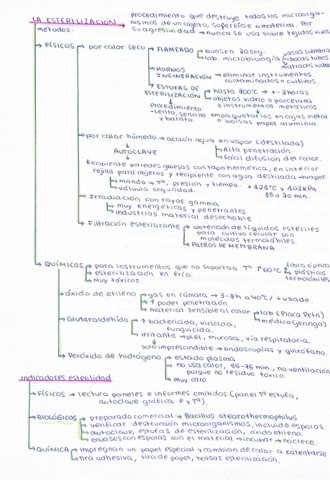 procedimiento que destruye todos los microorga-
LA ESTERILIZACIÓN nismos de un objeto, superficie o material. Por
métodos: su agresividad → nunca se usa sobre tejidos vivos
FÍSICOS → por calor seco → FLAMEADO → bunsen 20 seg. asas siembra
lab. microbiología bocas tubos
matraces vidrio
HORNOS
INCINERACIÓN → eliminar instrumentos
contaminados o cultivos.
ESTUFAS DE
ESTERILIZACIÓN hasta 200ºC → +- 2 horas
objetos vidrio o porcelana
Procedimiento: o instrumentos metálicos
-Lento, sencillo empaquetarlos en cajas metal
y barato. o bolsas papel aluminio.
por calor húmedo → acción agua en vapor (destilada)
AUTOCLAVE Alta penetración
fácil difusión del calor.
Recipiente paredes gruesas con tapa hermética, en interior
rejilla para objetos y recipiente con agua destilada → vapor.
mando → Tª, presión y tiempo.
válvula seguridad. 15 a 20 min.
Irradiación con rayos gamma
muy energéticas y penetrantes
industrias material desechable
Filtración esterilizante → obtención de líquidos estériles
para cultivo celular con
moléculas termolábiles.
FILTROS DE MEMBRANA
QUÍMICOS → para instrumentos que no soportan Tª ↑60ºC fibra óptica
esterilización en frío. plásticos
Muy tóxicos. termolábiles
óxido de etileno → gas en cámara → 3-8h a 40ºC / + usado.
↑ poder penetración
material sensible al calor lab (Placa Petri)
médico (jeringa)
Glutaraldehído → ↑ bactericida, viricida,
fungicida.
irritante → piel, mucosa, vía respiratoria.
solo imprescindible → endoscopias y quirófano.
Peróxido de hidrógeno → estado plasma
no usa calor, 55-75 min, no ventilación
porque no residuo tóxico
muy caro
Indicadores esterilidad
FÍSICOS → lectura paneles e informes emitidos (panel Tª estufa,
autoclave gráfica P y Tª)
BIOLÓGICOS → preparado comercial → Bacillus stearothermophilus
verificar destrucción microorganismos, incluido esporas.
autoclave, estufas de esterilización, óxido etileno.
envases con esporas con el material → incubar → no crece.
QUÍMICA → impregnan un papel especial y cambian de color al calentarse
tira adhesiva, tira de papel, bolsas esterilización.